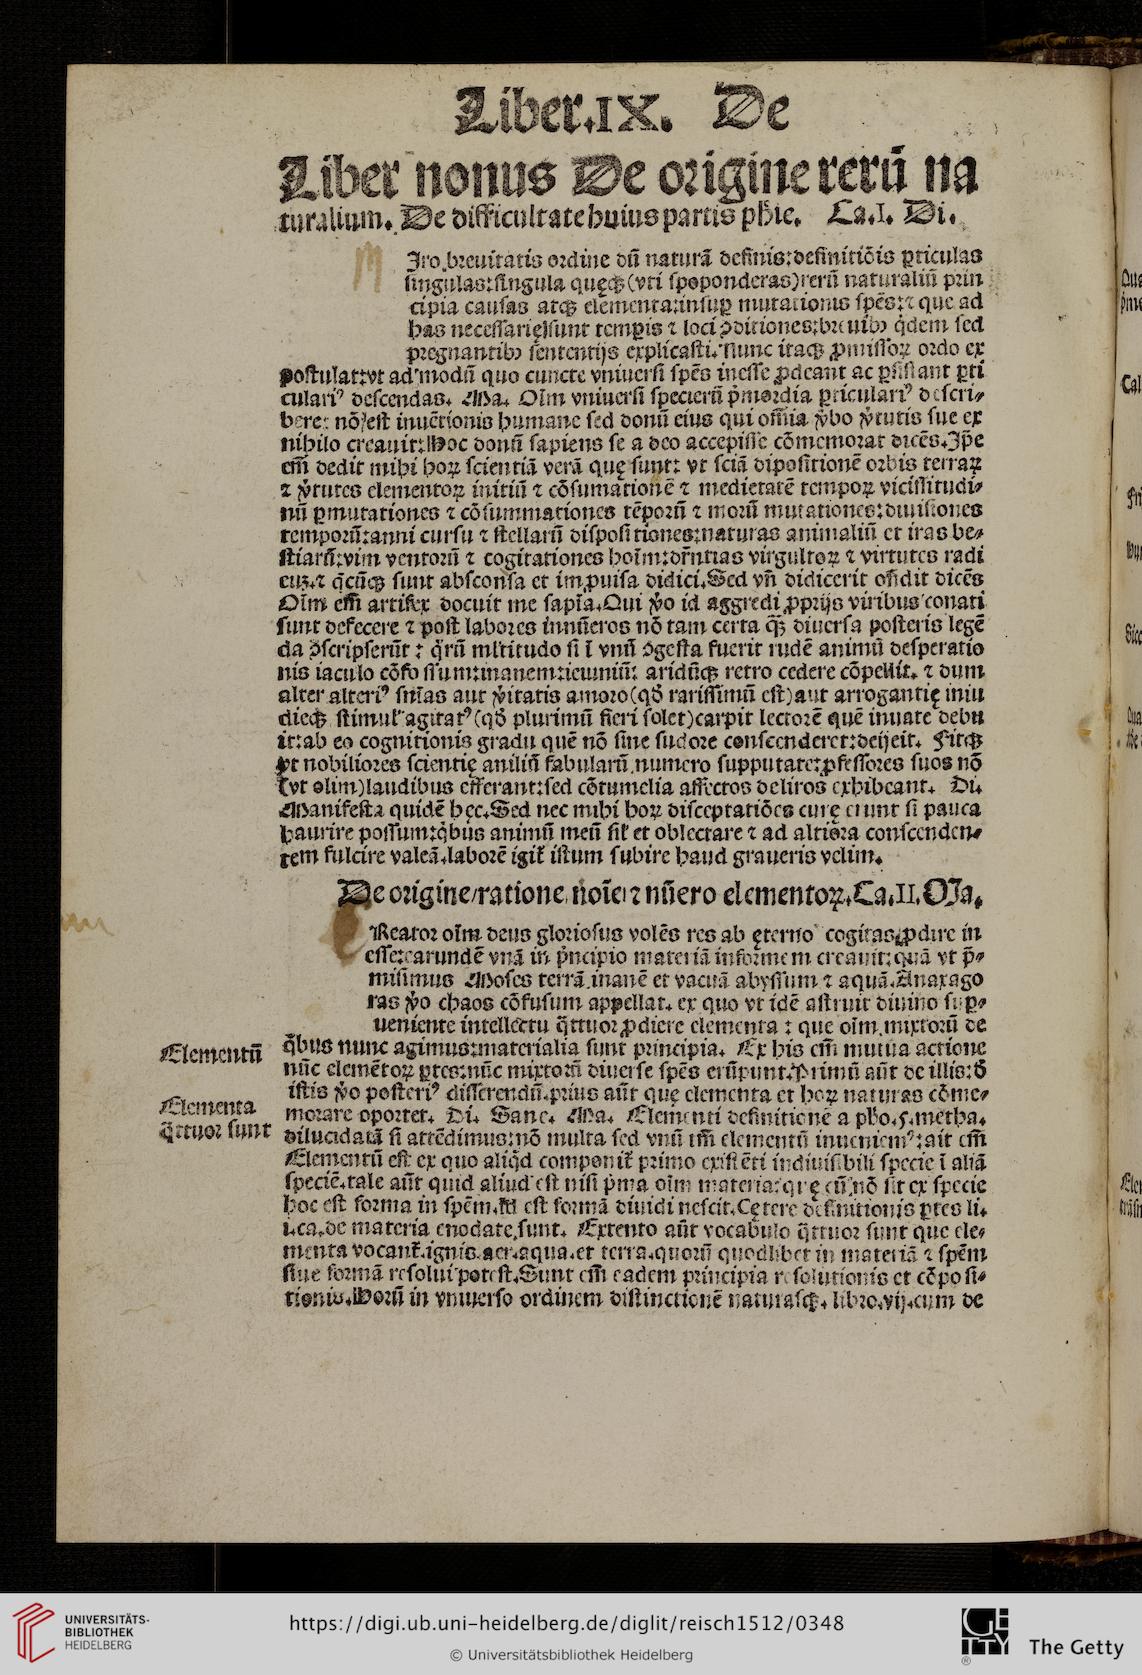 Liber.IX. De
Liber nonus De origine rerū na
turalium. De difficultate huius partis phīe. Ca.I. Di.
M Iro breuitatis ordine dū naturā definis: definitiōis ꝑticulas
singulas: singula quęqꝫ (vti spoponderas) rerū naturaliū prin
cipia causas atqꝫ elementa: insuꝑ mutationis spēs: ⁊ que ad
has necessarię sunt temꝑis ⁊ loci ꝯditiones: breuibꝰ q̇dem sed
pregnantibꝰ sententijs explicasti. Nunc itaqꝫ ꝓmissoꝝ ordo ex
postulat: vt ad modū quo cuncte vniuersi spēs inesse ꝓdeant ac ꝑsistant ꝑti
culariꝰ descendas. Ma. Oīm vniuersi specierū p̄mordia ꝑticulariꝰ descri⸗
bere: nō est inuētionis humane sed donū eius qui om̄ia v̄bo v̄tutis sue ex
nihilo creauit: Hoc donū sapiens se a deo accepisse cōmemorat dicēs. Ip̄e
em̄ dedit mihi hoꝝ scientiā verā quę sunt: vt sciā dipositionē orbis terraꝝ
⁊ v̄tutes elementoꝝ initiū ⁊ cōsumationē ⁊ medietatē tempoꝝ vicissitudi⸗
nū ꝑmutationes ⁊ cōsummationes tēporū ⁊ morū mutationes: diuisiones
temporū: anni cursu ⁊ stellarū dispositiones: naturas animaliū et iras be⸗
stiarū: vim ventorū ⁊ cogitationes hoīm: dr̄ntias virgultoꝝ ⁊ virtutes radi
cuꝫ. ⁊ q̄cūqꝫ sunt absconsa et improuisa didici. Sed vn̄ didicerit oñdit dicēs
Oīm em̄ artifex docuit me sapīa. Qui v̄o id aggredi ꝓprijs viribus conati
sunt defecere ⁊ post labores innūeros nō tam certa q̄ꝫ diuersa posteris legē
da ꝯscripserūt: q̄rū ml̄titudo si ī vnū ꝯgesta fuerit rudē animū desperatio
nis iaculo cōfossum: inanem: ieiuniū: aridūqꝫ retro cedere cōpellit. ⁊ dum
alter alteriꝰ sn̄ias aut v̄itatis amore (qđ rarissimū est) aut arrogantię iniu
dieqꝫ stimul' agitatꝰ (qđ plurimū fieri solet) carpit lectorē quē inuate debu
it: ab eo cognitionis gradu quē nō sine sudore conscenderet: deijcit. Fitqꝫ
vt nobiliores scientię aniliū fabularū numero supputate: ꝓfessores suos nō
(vt olim) laudibus efferant: sed cōtumelia affectos deliros exhibeant. Di.
Manifesta quidē hęc. Sed nec mihi hoꝝ disceptatiōes curę erunt si pauca
haurire possum: q̇bus animū meū sil' et oblectare ⁊ ad altiora conscenden⸗
tem fulcire valeā. laborē igit̄ istum subire haud graueris velim.
De origine/ ratione/ noīe/ ⁊ nūero elementoꝝ. Ca.II. Ma.
C Reator oīm deus gloriosus volēs res ab ęterno cogitas ꝓdire in
esse: earundē vnā in p̄ncipio materiā informem creauit: quā vt p̄⸗
misimus Moses terrā inanē et vacuā abyssum ⁊ aquā. Anaxago
ras v̄o chaos cōfusum appellat. ex quo vt idē astruit diuino suꝑ⸗
ueniente intellectu q̄ttuor ꝓdiere elementa: que oīm mixtorū de
q̇bus nunc agimus: materialia sunt principia. Ex his em̄ mutua actione
nūc elemētoꝝ ꝑtes: nūc mixtorū diuerse spēs erūpunt. Primū aūt de illis: đ
istis v̄o posteriꝰ disserendū. prius aūt quę elementa et hoꝝ naturas cōme⸗
morare oportet. Di. Sane. Ma. Elementi definitionē a pho. 5. metha.
dilucidatā si attēdimus: nō multa sed vnū tm̄ elementū inueniemꝰ: ait em̄
Elementū est ex quo aliq̇d componit̄ primo existēti indiuisibili specie ī aliā
speciē. tale aūt quid aliud est nisi p̄ma oīm materia: quę cū nō sit ex specie
hoc est forma in spēm. id est formā diuidi nescit. Cętere definitionis ꝑtes li.
i. ca. de materia enodate sunt. Extento aūt vocabulo q̄ttuor sunt que ele⸗
menta vocant̄. ignis. aer. aqua. et terra. quorū quodlibet in materiā ⁊ spēm
siue formā resolui potest. Sunt em̄ eadem principia resolutionis et cōposi⸗
tionis. Horū in vniuerso ordinem distinctionē naturasqꝫ. libro. vij. cum de
Elementū
Elementa
q̄ttuor sunt
UNIVERSITÄTS-
BIBLIOTHEK
HEIDELBERG
https://digi.ub.uni-heidelberg.de/diglit/reisch1512/0348
© Universitätsbibliothek Heidelberg
GETTY
The Getty